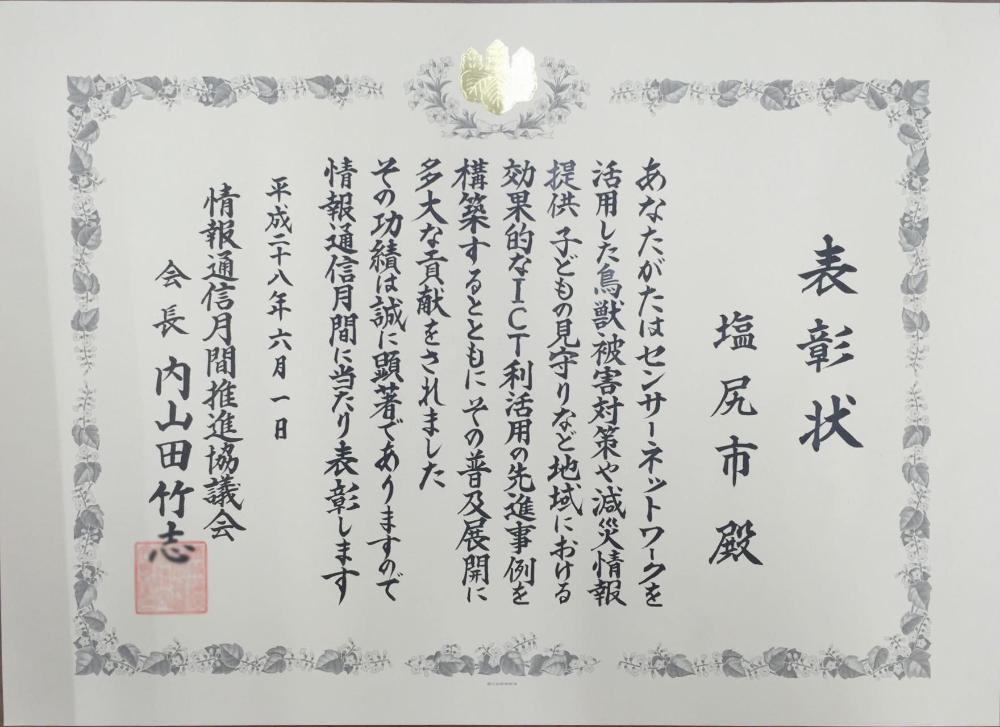 表彰状
塩尻市殿
あなたがたはセンサーネットワークを
活用した鳥獣被害対策や減災情報
提供 子どもの見守りなど地域における
効果的なICT利活用の先進事例を
構築するとともに その普及展開に
多大な貢献をされました
その功績は誠に顕著でありますので
情報通信月間に当たり表彰します
平成二十八年六月一日
情報通信月間推進協議会
会長 内山田竹志